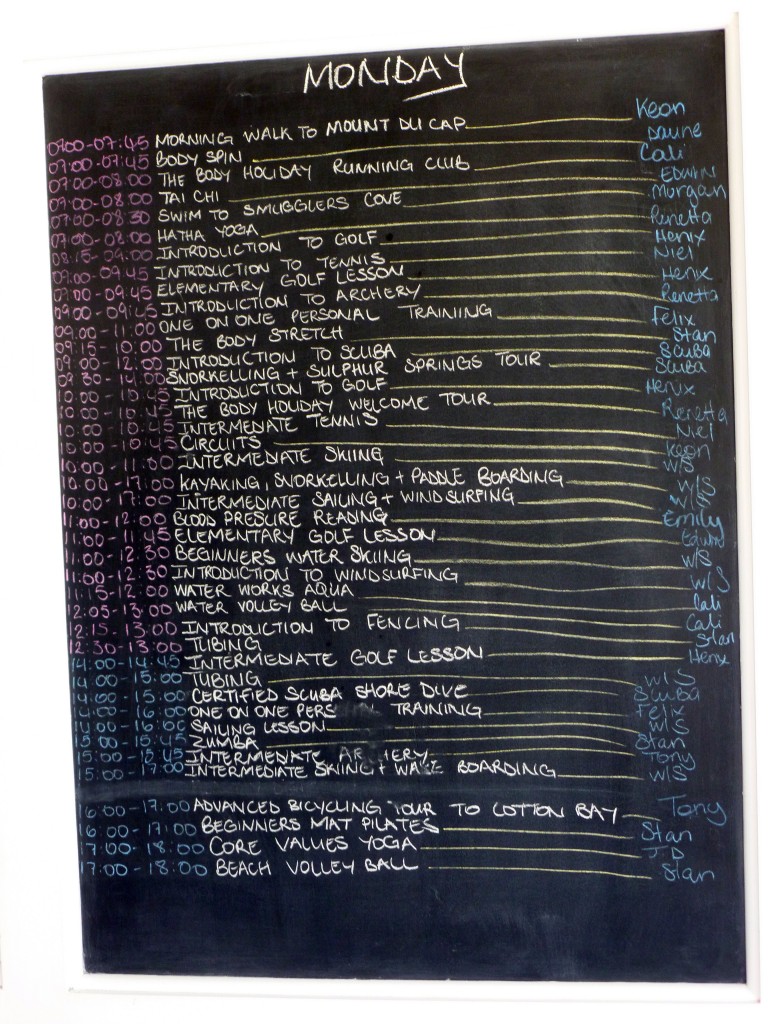 MONDAY
07:00-07:45 MORNING WALK TO MOUNT DU CAP Keon
07:00-07:45 BODY SPIN Daune
07:00-08:00 THE BODY HOLIDAY RUNNING CLUB Cali
07:00-08:00 TAI CHI Edwin
07:00-08:30 SWIM TO SMUGGLERS COVE Morgan
07:00-08:00 HATHA YOGA Renetta
08:15-09:00 INTRODUCTION TO GOLF Henix
09:00-09:45 INTRODUCTION TO TENNIS Niel
09:00-09:45 ELEMENTARY GOLF LESSON Henix
09:00-09:45 INTRODUCTION TO ARCHERY Renetta
09:00-11:00 ONE ON ONE PERSONAL TRAINING Felix
09:15-10:00 THE BODY STRETCH Stan
09:00-12:00 INTRODUCTION TO SCUBA Scuba
09:30-14:00 SNORKELLING + SULPHUR SPRINGS TOUR Scuba
10:00-10:45 INTRODUCTION TO GOLF Henix
10:00-10:45 THE BODY HOLIDAY WELCOME TOUR Renetta
10:00-10:45 INTERMEDIATE TENNIS Niel
10:00-10:45 CIRCUITS Keon
10:00-11:00 INTERMEDIATE SKIING W/S
10:00-17:00 KAYAKING, SNORKELLING + PADDLE BOARDING W/S
10:00-17:00 INTERMEDIATE SAILING + WINDSURFING W/S
11:00-12:00 BLOOD PRESURE READING Emily
11:00-11:45 ELEMENTARY GOLF LESSON Edwin
11:00-12:30 BEGINNERS WATER SKIING W/S
11:00-12:30 INTRODUCTION TO WINDSURFING W/S
11:15-12:00 WATER WORKS AQUA Cali
12:05-13:00 WATER VOLLEY BALL Cali
12:15-13:00 INTRODUCTION TO FENCING Stan
12:30-13:00 TUBING
14:00-14:45 INTERMEDIATE GOLF LESSON Henix
14:00-15:00 TUBING W/S
14:00-15:00 CERTIFIED SCUBA SHORE DIVE Scuba
14:00-16:00 ONE ON ONE TRAINING Felix
14:00-16:00 SAILING LESSON W/S
15:00-15:45 ZUMBA Stan
15:00-15:45 INTERMEDIATE ARCHERY Tony
15:00-17:00 INTERMEDIATE SKIING + WAKE BOARDING W/S
16:00-17:00 ADVANCED BICYCLING TOUR TO COTTON BAY Tony
16:00-17:00 BEGINNERS MAT PILATES Stan
17:00-18:00 CORE VALUES YOGA JD
17:00-18:00 BEACH VOLLEY BALL Stan